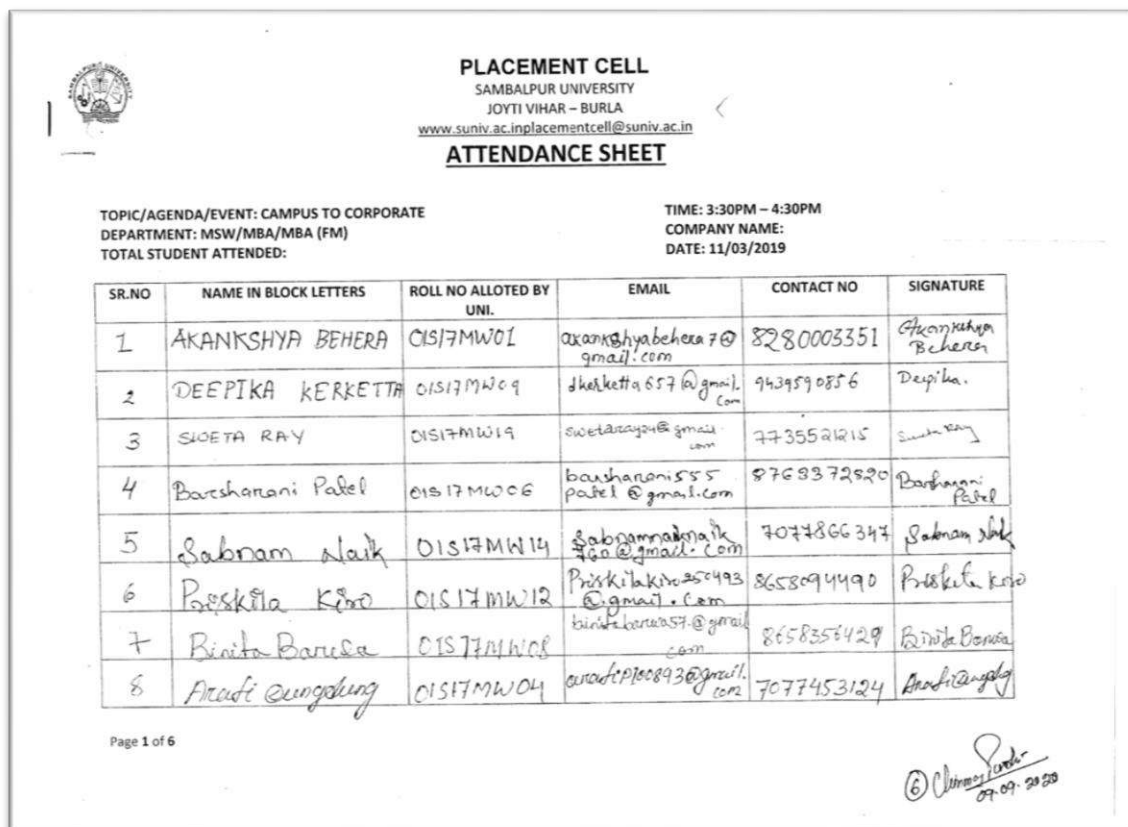 SAMBALPUR UNIVERSITY
PLACEMENT CELL
SAMBALPUR UNIVERSITY
JOYTI VIHAR – BURLA
www.suniv.ac.inplacementcell@suniv.ac.in
ATTENDANCE SHEET
TOPIC/AGENDA/EVENT: CAMPUS TO CORPORATE
DEPARTMENT: MSW/MBA/MBA (FM)
TOTAL STUDENT ATTENDED:
TIME: 3:30PM – 4:30PM
COMPANY NAME:
DATE: 11/03/2019
SR.NO NAME IN BLOCK LETTERS ROLL NO ALLOTED BY UNI. EMAIL CONTACT NO SIGNATURE
1 AKANKSHYA BEHERA 01S17MW01 akankshyabehera7@gmail.com 8280003351 Akankshya Behera
2 DEEPIKA KERKETTA 01S17MW09 dkerketta657@gmail.com 9439590856 Deepika.
3 SWETA RAY 01S17MW19 swetaray24@gmail.com 7735521215 Sweta Ray
4 Barsharani Patel 01S17MW06 barsharani555patel@gmail.com 8763372820 Barsharani Patel
5 Sabnam Naik 01S17MW14 7077866347 Sabnam Naik
6 Priskila Kiro 01S17MW12 Priskilakiro250493@gmail.com 8658094490 Priskila Kiro
7 Binita Barwa 01S17MW08 binitabarwa57@gmail.com 8658356429 Binita Barwa
8 Arati 01S17MW04 7077453124 Arati
Page 1 of 6
6
09-09-2020